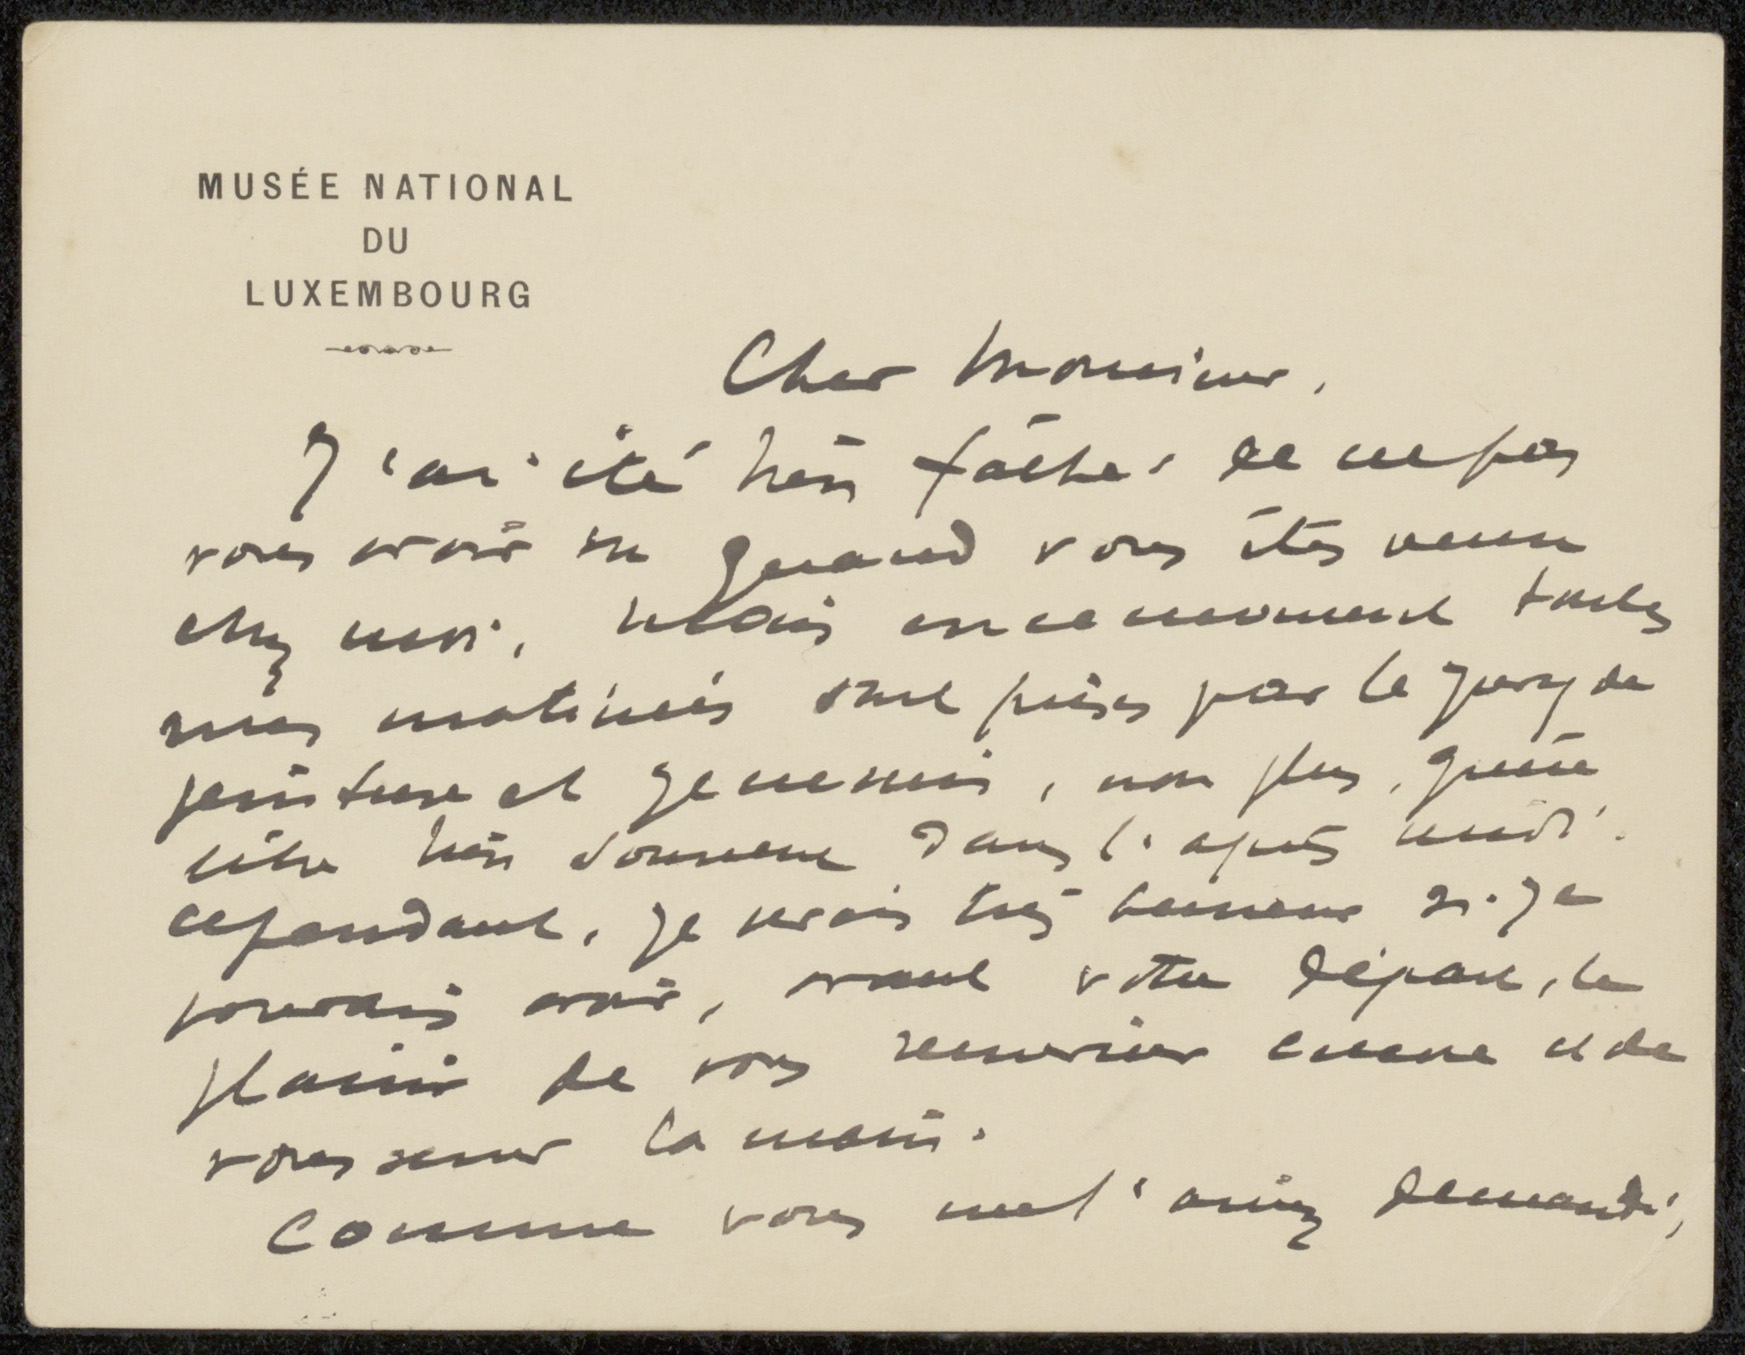 MUSÉE NATIONAL
DU
LUXEMBOURG
Cher Monsieur,
J'ai été bien fâché de ne pas
vous avoir vu quand vous êtes venu
chez moi. Mais en ce moment toutes
mes matinées sont prises par le jury de
peinture et je ne suis, non plus, guère
libre bien souvent dans l'après midi.
cependant, je serais très heureux si je
pouvais avoir, avant votre départ, le
plaisir de vous remercier encore et de
vous serrer la main.
Comme vous me l'aviez demandé,